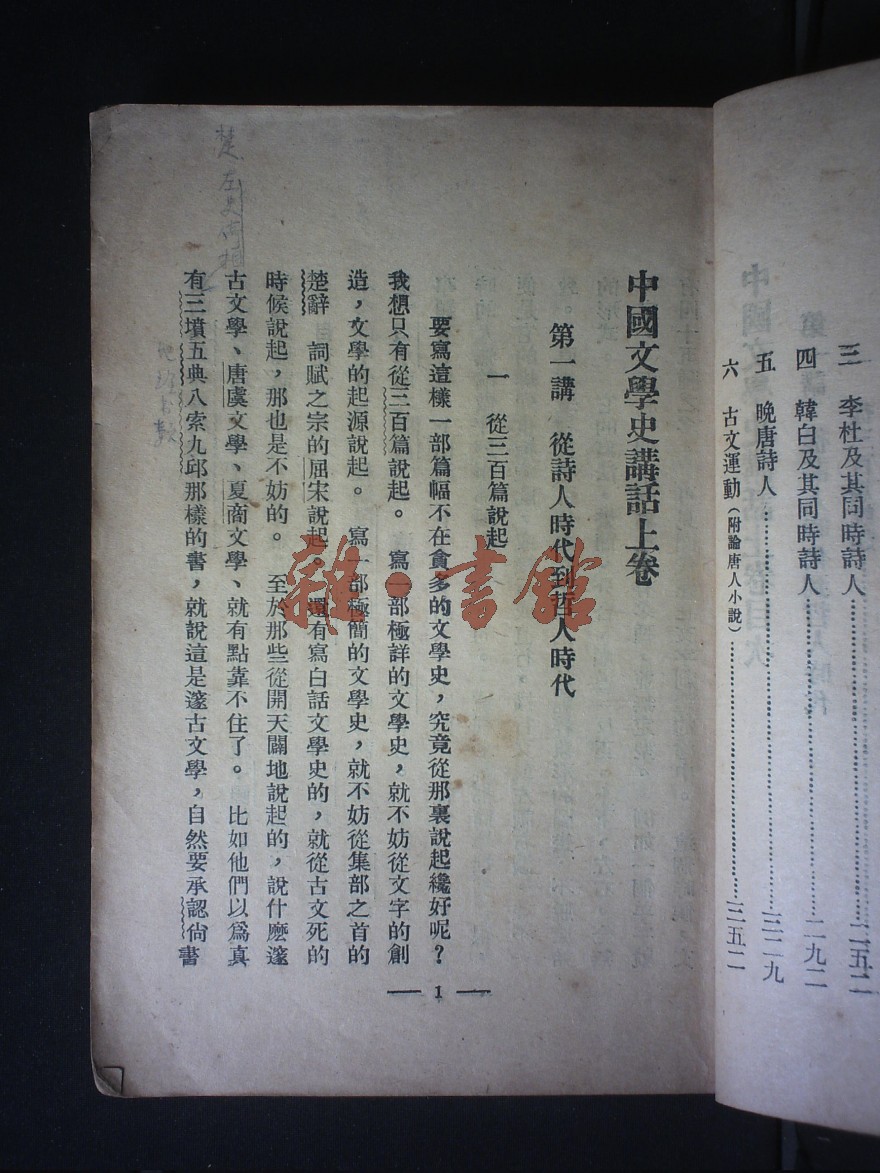 三 李杜及其同時詩人……二五二
四 韓白及其同時詩人……二九二
五 晚唐詩人……三二九
六 古文運動（附論唐人小說）……三五二
中國文學史講話上卷
第一講 從詩人時代到哲人時代
一 從三百篇說起
要寫這樣一部篇幅不在貪多的文學史，究竟從那裏說起纔好呢？
我想只有從三百篇說起。 寫一部極詳的文學史，就不妨從文字的創
造，文學的起源說起。 寫一部極簡的文學史，就不妨從集部之首的
楚辭 詞賦之宗的屈宋說起。 還有寫白話文學史的，就從古文死的
時候說起，那也是不妨的。 至於那些從開天闢地說起的，說什麼邃
古文學、唐虞文學、夏商文學、就有點靠不住了。 比如他們以爲真
有三墳五典八索九邱那樣的書，就說這是邃古文學，自然要承認尙書
— 1 —
楚左史倚相
雜·書館